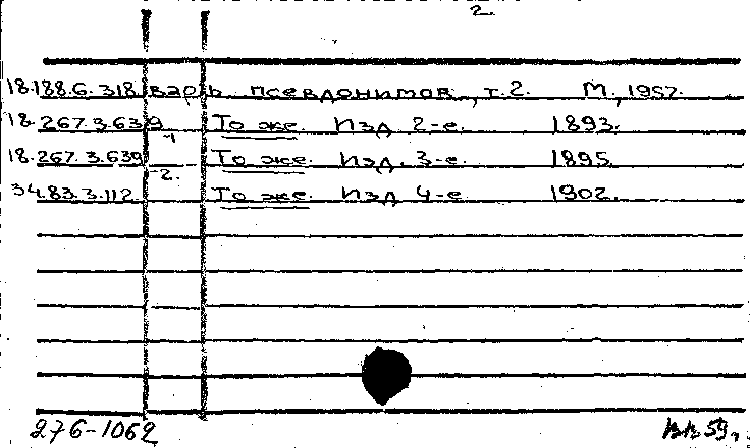 2.
18.188.6.318 варь псевдонимов, т. 2. М., 1957.
18.267.3.639 То же. Изд. 2-е. 1893.
-1
18.267.3.639 То же. Изд. 3-е. 1895.
-2.
34.83.3.112 То же. Изд. 4-е 1902.
276-1062